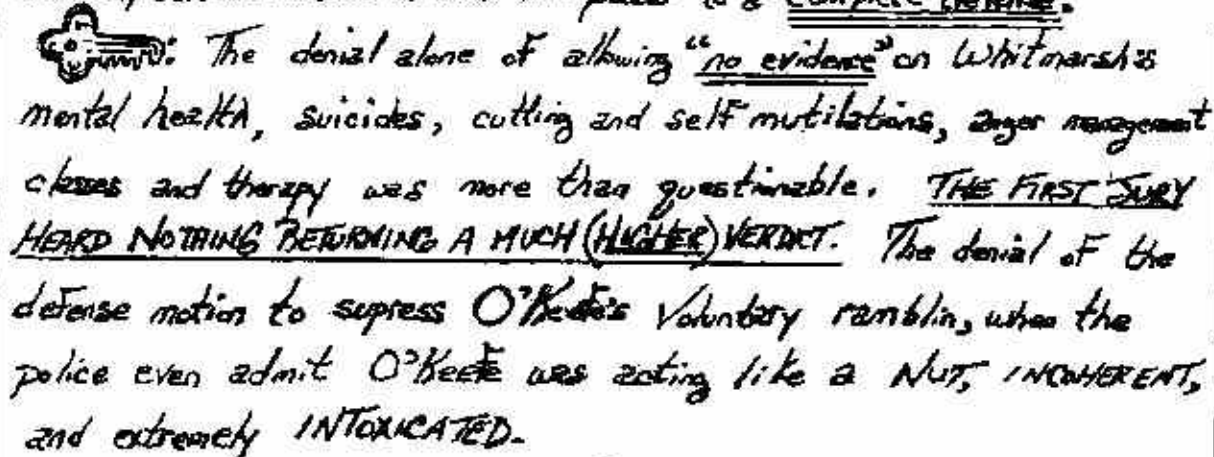 COMPLETE DEFENSE.
: The denial alone of allowing "no evidence" on Whitmarsh's
mental health, suicides, cutting and self mutilations, anger management
classes and therapy was more than questionable. THE FIRST JURY
HEARD NOTHING RETURNING A MUCH (HIGHER) VERDICT. The denial of the
defense motion to supress O'Keefe's Voluntary ramblin, when the
police even admit O'Keefe was acting like a NUT, INCOHERENT,
and extremely INTOXICATED.